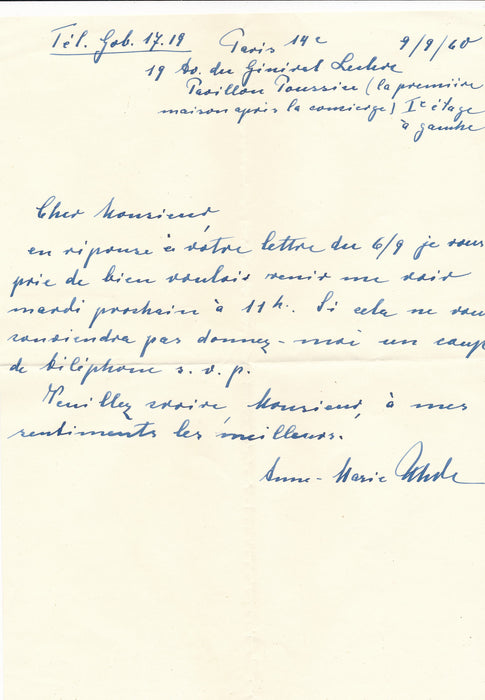 Tél. Gob. 17.19 Paris 14e 9/9/60
19 Av. du Général Leclerc
Pavillon Poussin (la première
maison après la concierge) Ie étage
à gauche
Cher Monsieur,
en réponse à votre lettre du 6/9 je vous
prie de bien vouloir venir me voir
mardi prochain à 11h. Si cela ne vou
conviendra pas donnez-moi un coup
de téléphone s.v.p.
Veuillez croire Monsieur, à mes
sentiments les meilleurs.
Anne-Marie Uhde